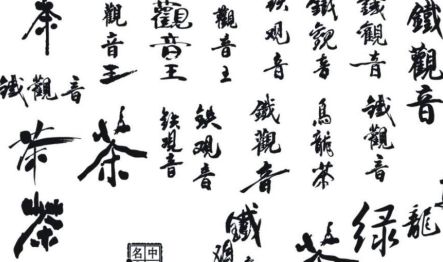 茶
觀音王
觀音王
觀音王
铁观音
鐵觀音
鐵觀音
鐵觀音
鐵觀音
茶
茶
茶
铁观音
铁观音
鐵觀音
烏龍茶
鐵觀音
鐵观音
茶
绿
龍
名中